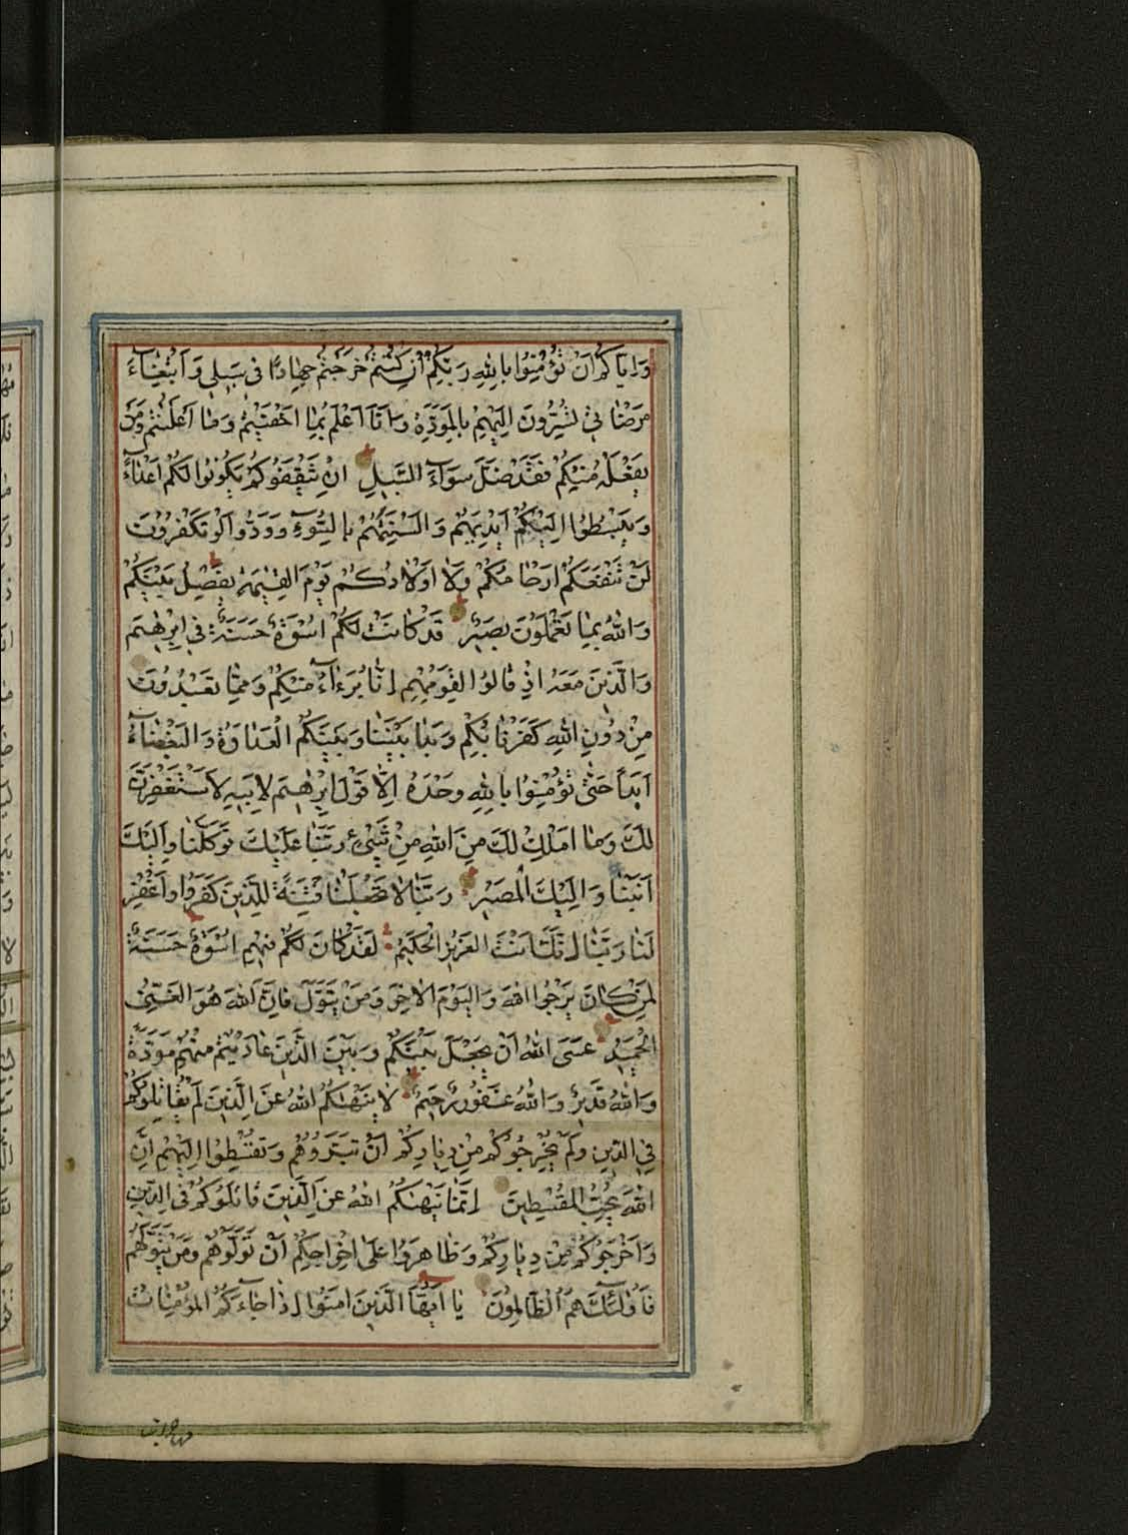 وَاِيَّاكُمْ اَنْ تُؤْمِنُوا بِاللهِ رَبِّكُمْ اِنْ كُنْتُمْ خَرَجْتُمْ جِهَادًا فِى سَبِيلِى وَابْتِغَآءَ
مَرْضَاتِى تُسِرُّونَ اِلَيْهِمْ بِالْمَوَدَّةِ وَاَنَا اَعْلَمُ بِمَا اَخْفَيْتُمْ وَمَا اَعْلَنْتُمْ وَمَنْ
يَفْعَلْهُ مِنْكُمْ فَقَدْ ضَلَّ سَوَآءَ السَّبِيلِ اِنْ يَثْقَفُوكُمْ يَكُونُوا لَكُمْ اَعْدَآءً
وَيَبْسُطُوا اِلَيْكُمْ اَيْدِيَهُمْ وَاَلْسِنَتَهُمْ بِالسُّوءِ وَوَدُّوا لَوْ تَكْفُرُونَ
لَنْ تَنْفَعَكُمْ اَرْحَامُكُمْ وَلَا اَوْلَادُكُمْ يَوْمَ الْقِيٰمَةِ يَفْصِلُ بَيْنَكُمْ
وَاللهُ بِمَا تَعْمَلُونَ بَصِيرٌ قَدْ كَانَتْ لَكُمْ اُسْوَةٌ حَسَنَةٌ فِى اِبْرٰهِيمَ
وَالَّذِينَ مَعَهُ اِذْ قَالُوا لِقَوْمِهِمْ اِنَّا بُرَءٰٓاءُ مِنْكُمْ وَمِمَّا تَعْبُدُونَ
مِنْ دُونِ اللهِ كَفَرْنَا بِكُمْ وَبَدَا بَيْنَنَا وَبَيْنَكُمُ الْعَدَاوَةُ وَالْبَغْضَآءُ
اَبَدًا حَتّٰى تُؤْمِنُوا بِاللهِ وَحْدَهُ اِلَّا قَوْلَ اِبْرٰهِيمَ لِاَبِيهِ لَاَسْتَغْفِرَنَّ
لَكَ وَمَا اَمْلِكُ لَكَ مِنَ اللهِ مِنْ شَىْءٍ رَبَّنَا عَلَيْكَ تَوَكَّلْنَا وَاِلَيْكَ
اَنَبْنَا وَاِلَيْكَ الْمَصِيرُ رَبَّنَا لَا تَجْعَلْنَا فِتْنَةً لِلَّذِينَ كَفَرُوا وَاغْفِرْ
لَنَا رَبَّنَا اِنَّكَ اَنْتَ الْعَزِيزُ الْحَكِيمُ لَقَدْ كَانَ لَكُمْ فِيهِمْ اُسْوَةٌ حَسَنَةٌ
لِمَنْ كَانَ يَرْجُوا اللهَ وَالْيَوْمَ الْاٰخِرَ وَمَنْ يَتَوَلَّ فَاِنَّ اللهَ هُوَ الْغَنِىُّ
الْحَمِيدُ عَسَى اللهُ اَنْ يَجْعَلَ بَيْنَكُمْ وَبَيْنَ الَّذِينَ عَادَيْتُمْ مِنْهُمْ مَوَدَّةً
وَاللهُ قَدِيرٌ وَاللهُ غَفُورٌ رَحِيمٌ لَا يَنْهٰىكُمُ اللهُ عَنِ الَّذِينَ لَمْ يُقَاتِلُوكُمْ
فِى الدِّينِ وَلَمْ يُخْرِجُوكُمْ مِنْ دِيَارِكُمْ اَنْ تَبَرُّوهُمْ وَتُقْسِطُوا اِلَيْهِمْ اِنَّ
اللهَ يُحِبُّ الْمُقْسِطِينَ اِنَّمَا يَنْهٰىكُمُ اللهُ عَنِ الَّذِينَ قَاتَلُوكُمْ فِى الدِّينِ
وَاَخْرَجُوكُمْ مِنْ دِيَارِكُمْ وَظَاهَرُوا عَلٰى اِخْرَاجِكُمْ اَنْ تَوَلَّوْهُمْ وَمَنْ يَتَوَلَّهُمْ
فَاُولٰٓئِكَ هُمُ الظَّالِمُونَ يَا اَيُّهَا الَّذِينَ اٰمَنُوا اِذَا جَآءَكُمُ الْمُؤْمِنَاتُ
مهاجرات